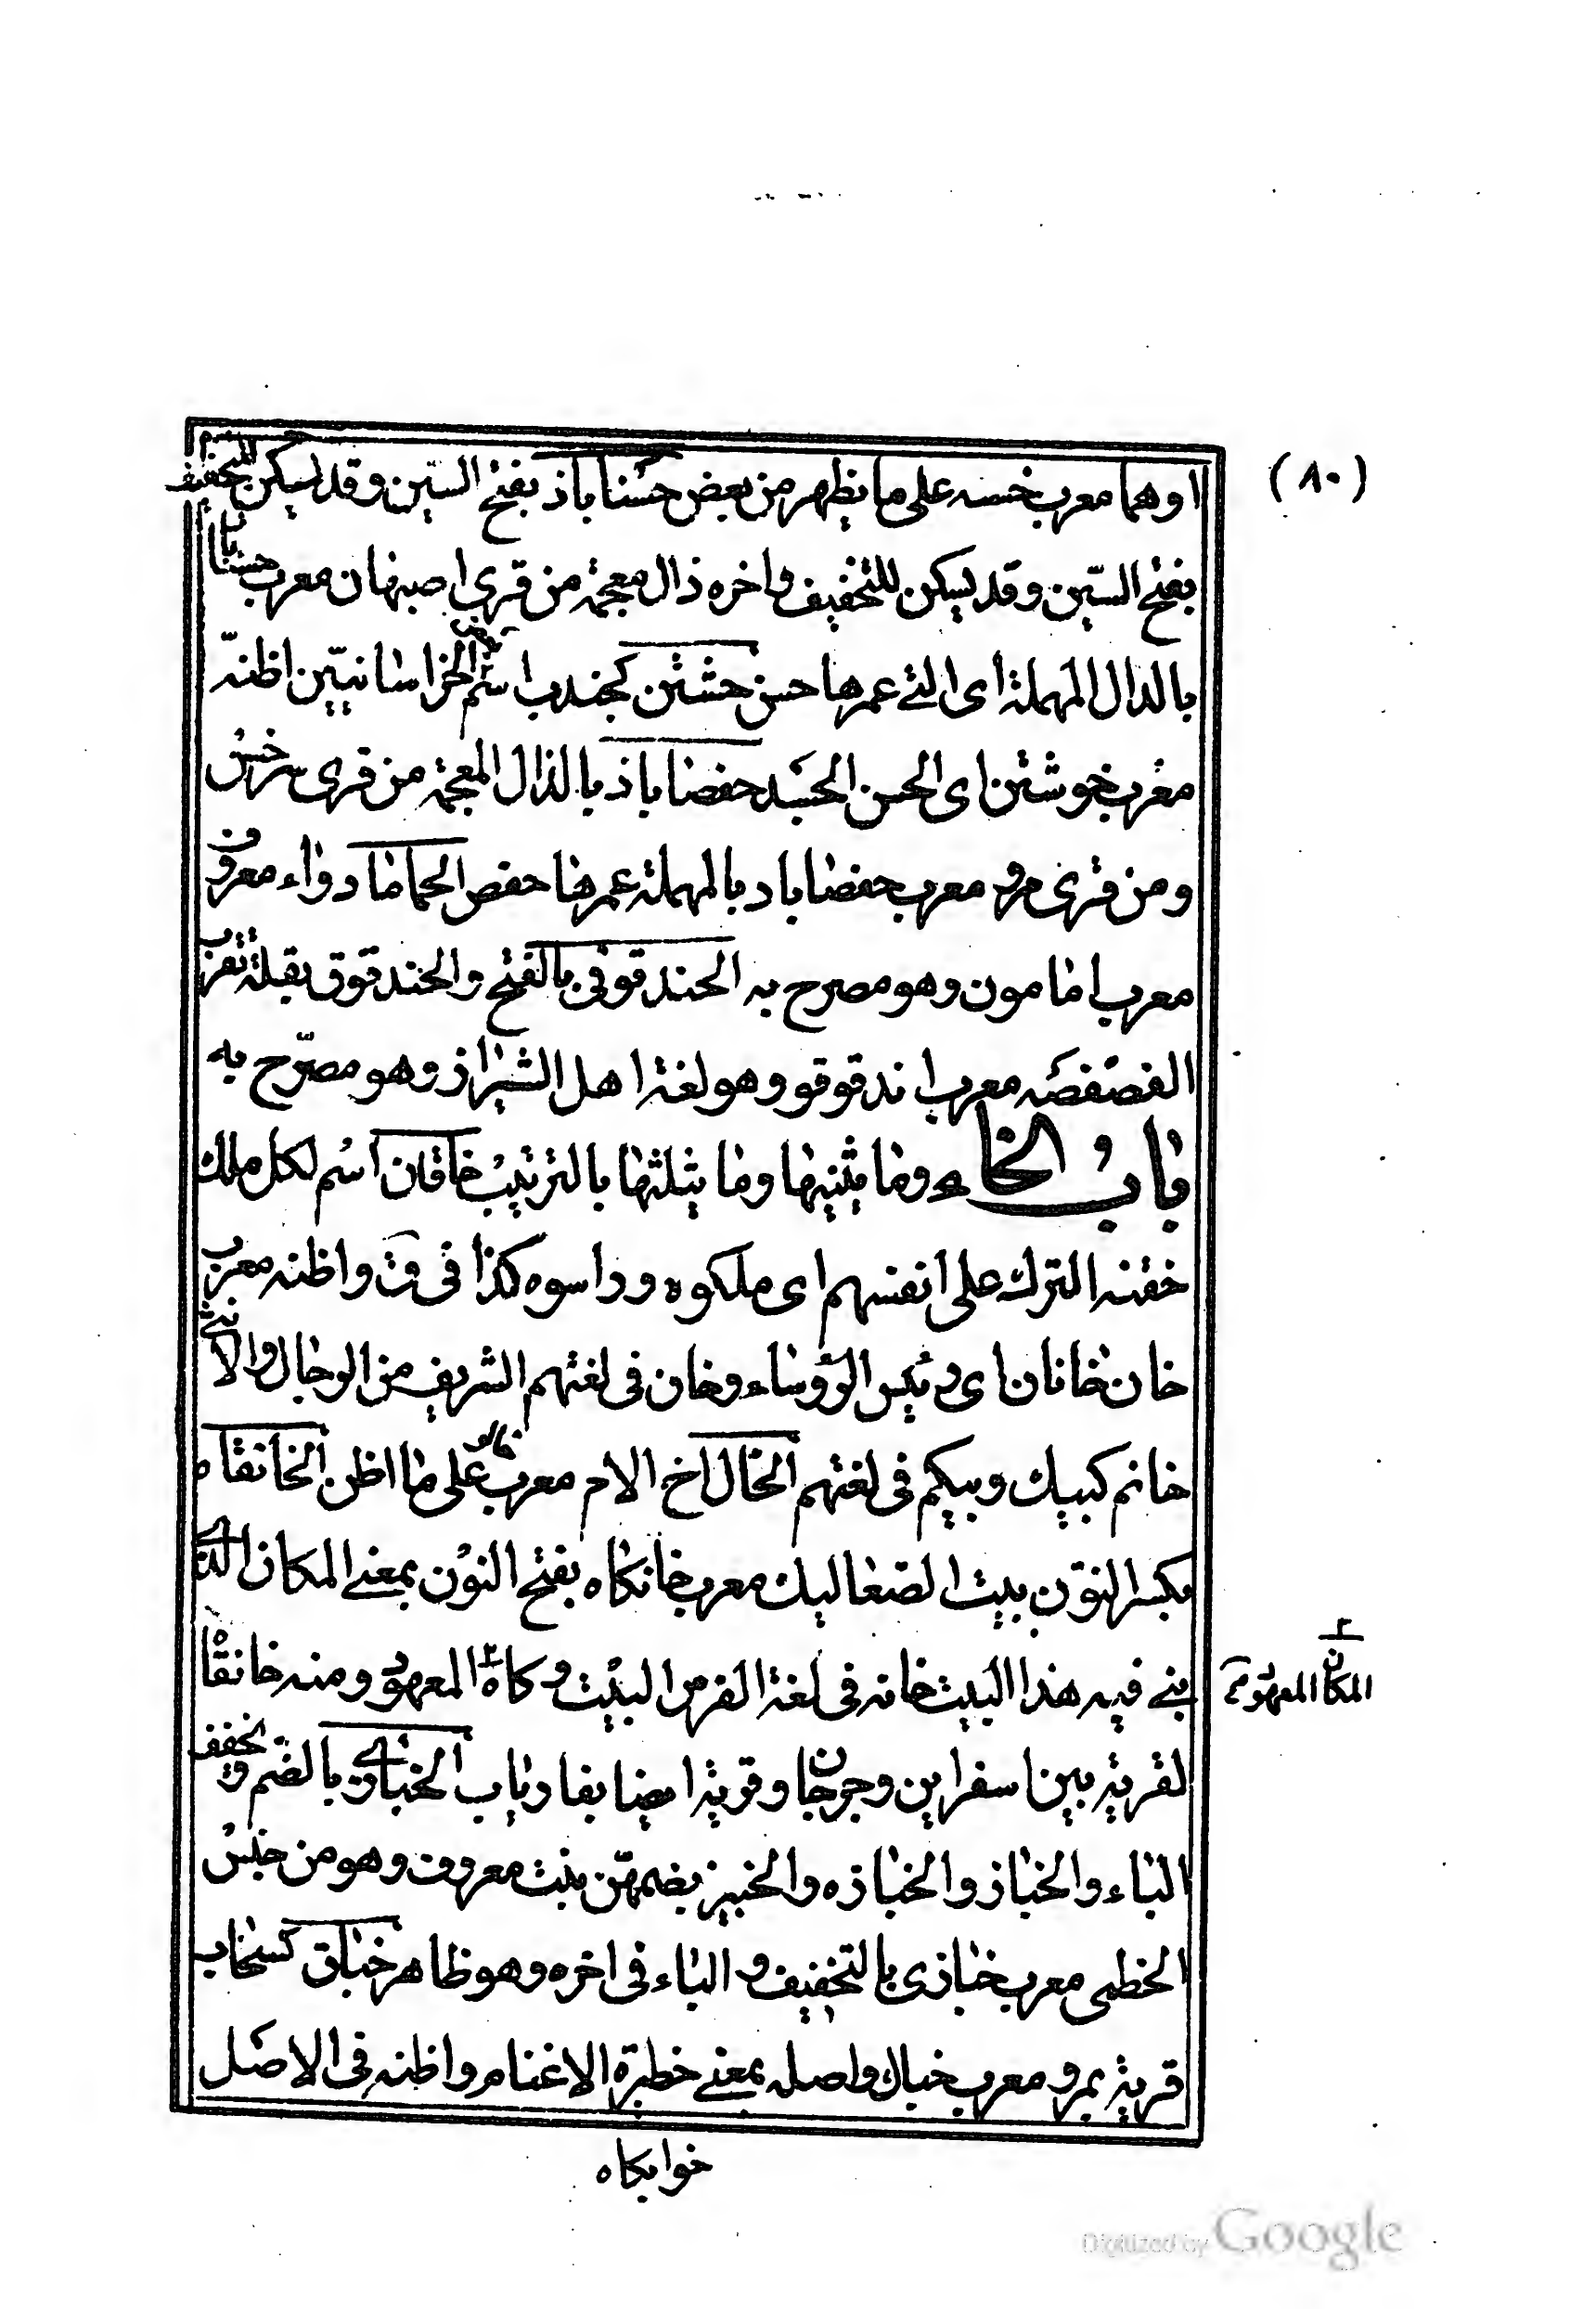 (٨٠)
او هما معرب خسه على ما يظهر من بعض حسناباذ بفتح السّين وقد ليسكن للتخفيف
بفتح السّين وقد ليسكن للتخفيف واخره ذال معجمة من قرى اصبهان معرب حسناباد
بالدال المهملة اى التے عمرها حسن حشتن كجندب اسم بعض الخراسانيّين اظنّه
معرب خوشتن اى الحسن الجسد حفصاباذ بالذال المعجمة من قرى سرخس
ومن قرى مرو معرب حفصاباد بالمهملة عمرها حفص الحماما دواء معروف
معرب امامون وهو مصرح به الحندقوقى بالفتح والحندقوق بقلة تقرب
الفصفصه معرب اندقوقو وهو لغة اهل الشيراز وهو مصرّح به
باب الخاء وما يثنيها وما يثلثها بالترتيب خاقان اسم لكل ملك
خقنه الترك على انفسهم اى ملكوه ورأسوه كذا فى ق واظنه معرب
خان خانان اى رئيس الرؤساء وخان فى لغتهم الشريف من الرجال والانثے
خانم كبيك وبيكم فى لغتهم الخال اخ الام معرب خالو على ما اظن الخانقاه
بكسر النون بيت الصعاليك معرب خانكاه بفتح النون بمعنے المكان الذے
بنے فيه هذا البيت خانه فى لغة الفرس البيت وكاه المعهود ومنه خانقاه
المكان المعهود صح
لقرية بين اسفراين وجرجان وقرية ايضا بفارياب الخبازى بالضم ويخفف
الباء والخباز والخبازه والخبيز بضمهّن نبت معروف وهو من جنس
الخطمى معرب خبازى بالتخفيف و الباء فى اخره وهو ظاهر خباق كسحاب
قرية بمرو معرب خباك واصله بمعنے حظيرة الاغنام واظنه فى الاصل
خوابكاه
Digitized by Google